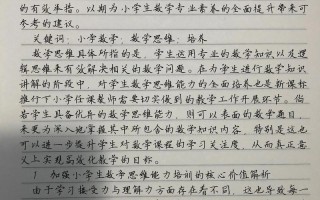 的有效举措。以期为小学生数学专业素养的全面提升带来可
参考的建议。
关键词：小学数学；数学思维；培养
数学思维具体所指的是，学生运用专业的数学知识以及逻
辑思维来有效解决相关的数学问题。在为学生进行数学知识
讲解的阶段中，对学生数学思维能力的全面培养也是新课标
推行下小学任课教师需要切实做到的教学工作开展环节。倘
若学生具备优异的数学思维能力，则可以表面的数学题目，
来更为深入地掌握其中所包含的数学知识内容，特别是这也
可以进一步提升学生对数学课程的学习关注度，从而真正意
义上实现高效化教学的目标。
1 加强小学生数学思维能力培训的核心价值解析
由于学习接受力与理解力方面存在着不同，这也导致每一